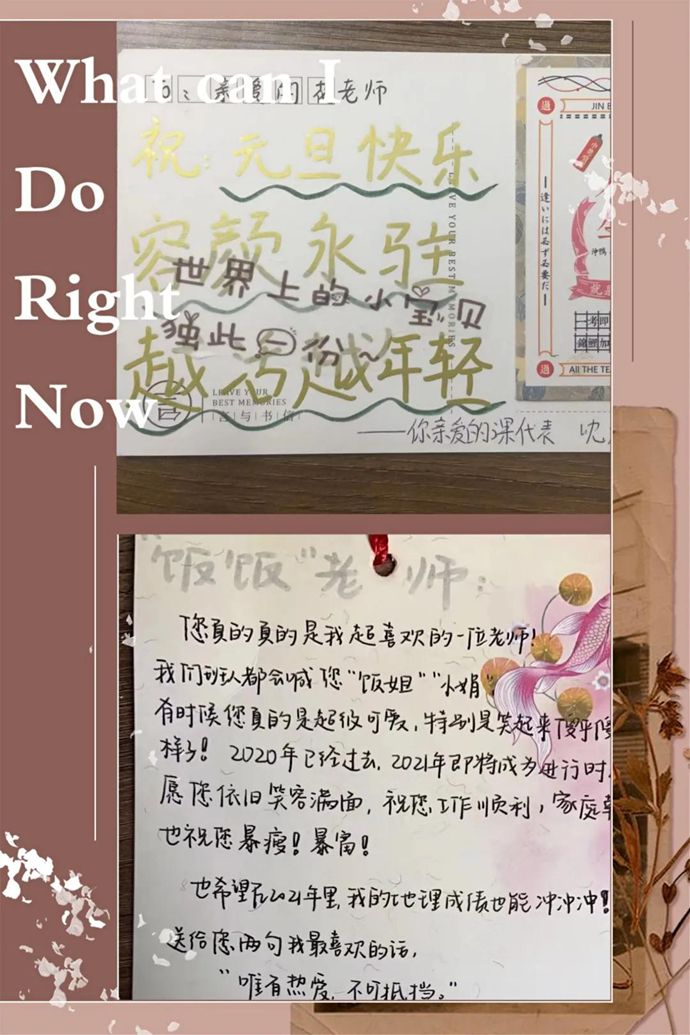 What can I
Do
Right
Now
亲爱的 老师
祝:元旦快乐
容颜永驻
世界上的小宝贝
独此一份~
越活越年轻
LEAVE YOUR BEST MEMORIES
LEAVE YOUR
BEST MEMORIES
言与书信
——你亲爱的课代表 沈
過
JIN B
逢いには必ず必要だ
考即
錦鯉加
過
All THE TE
"饭饭"老师:
您真的真的是我超喜欢的一位老师!
我们别人都会喊您"饭姐""小娟"
有时候您真的是超级可爱,特别是笑起来傻乎
样子!2020年已经过去,2021年即将成为进行时,
愿您依旧笑容满面,祝您工作顺利,家庭
也祝您暴瘦!暴富!
也希望在2021年里,我的地理成绩也能冲冲冲!
送给您两句我最喜欢的话,
"唯有热爱,不可抵挡。"